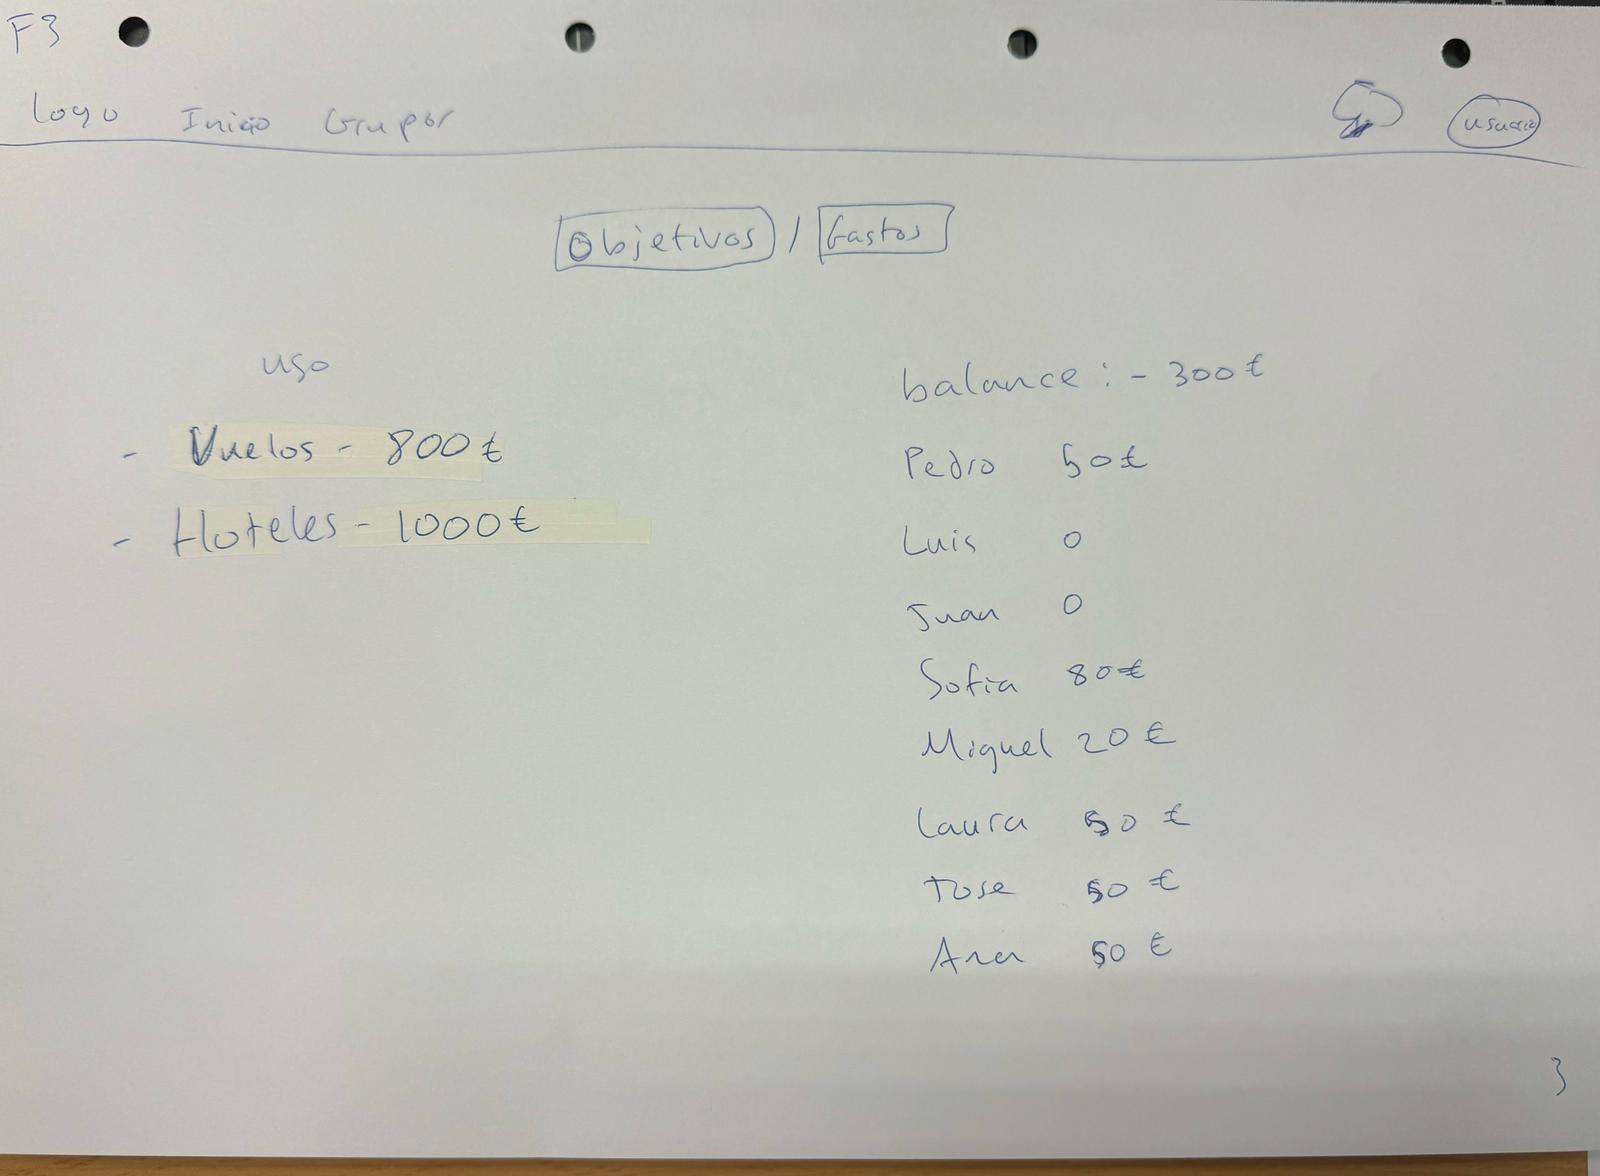 F3
Logo Inicio Grupos usuario
Objetivos / Gastos
uso
- Vuelos - 800€
- Hoteles - 1000€
balance: - 300€
Pedro 50€
Luis 0
Juan 0
Sofia 80€
Miguel 20€
Laura 50€
Jose 50€
Ana 50€
3